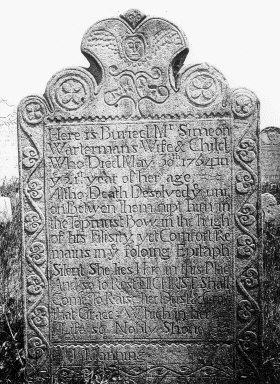 Here is Buried Mr Simeon
Watermans Wife & Child
Who Died May 30th 1764 in
ye 21st year of her age
Altho Death Desolved ye uni
on Betwen them
in the topmust bow in the heigh
of his filisity yet Comfort Re
mains my foloing Epitaph
Silent She lies Here in this Place
And so to Rest till CHRIST Shall
Come to Raise her Dust & Crown
that Grace Which in her
Life so Nobly Shone
Manning